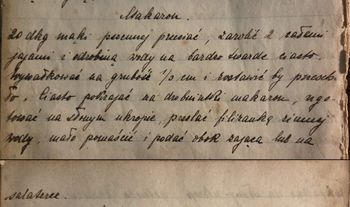 Makaron.
20 dkg mąki pszennej przesiać, zarobić 2 całemi
jajami i odrobiną wody na bardzo twarde ciasto.
Wywałkować na grubość ½ cm i zostawić by przeschło.
Ciasto pokrajać na drobniutki makaron, ugotować
na słonym ukropie, przelać filiżanką zimnej
wody, mało pomaścić i podać obok zająca lub na
salaterce.